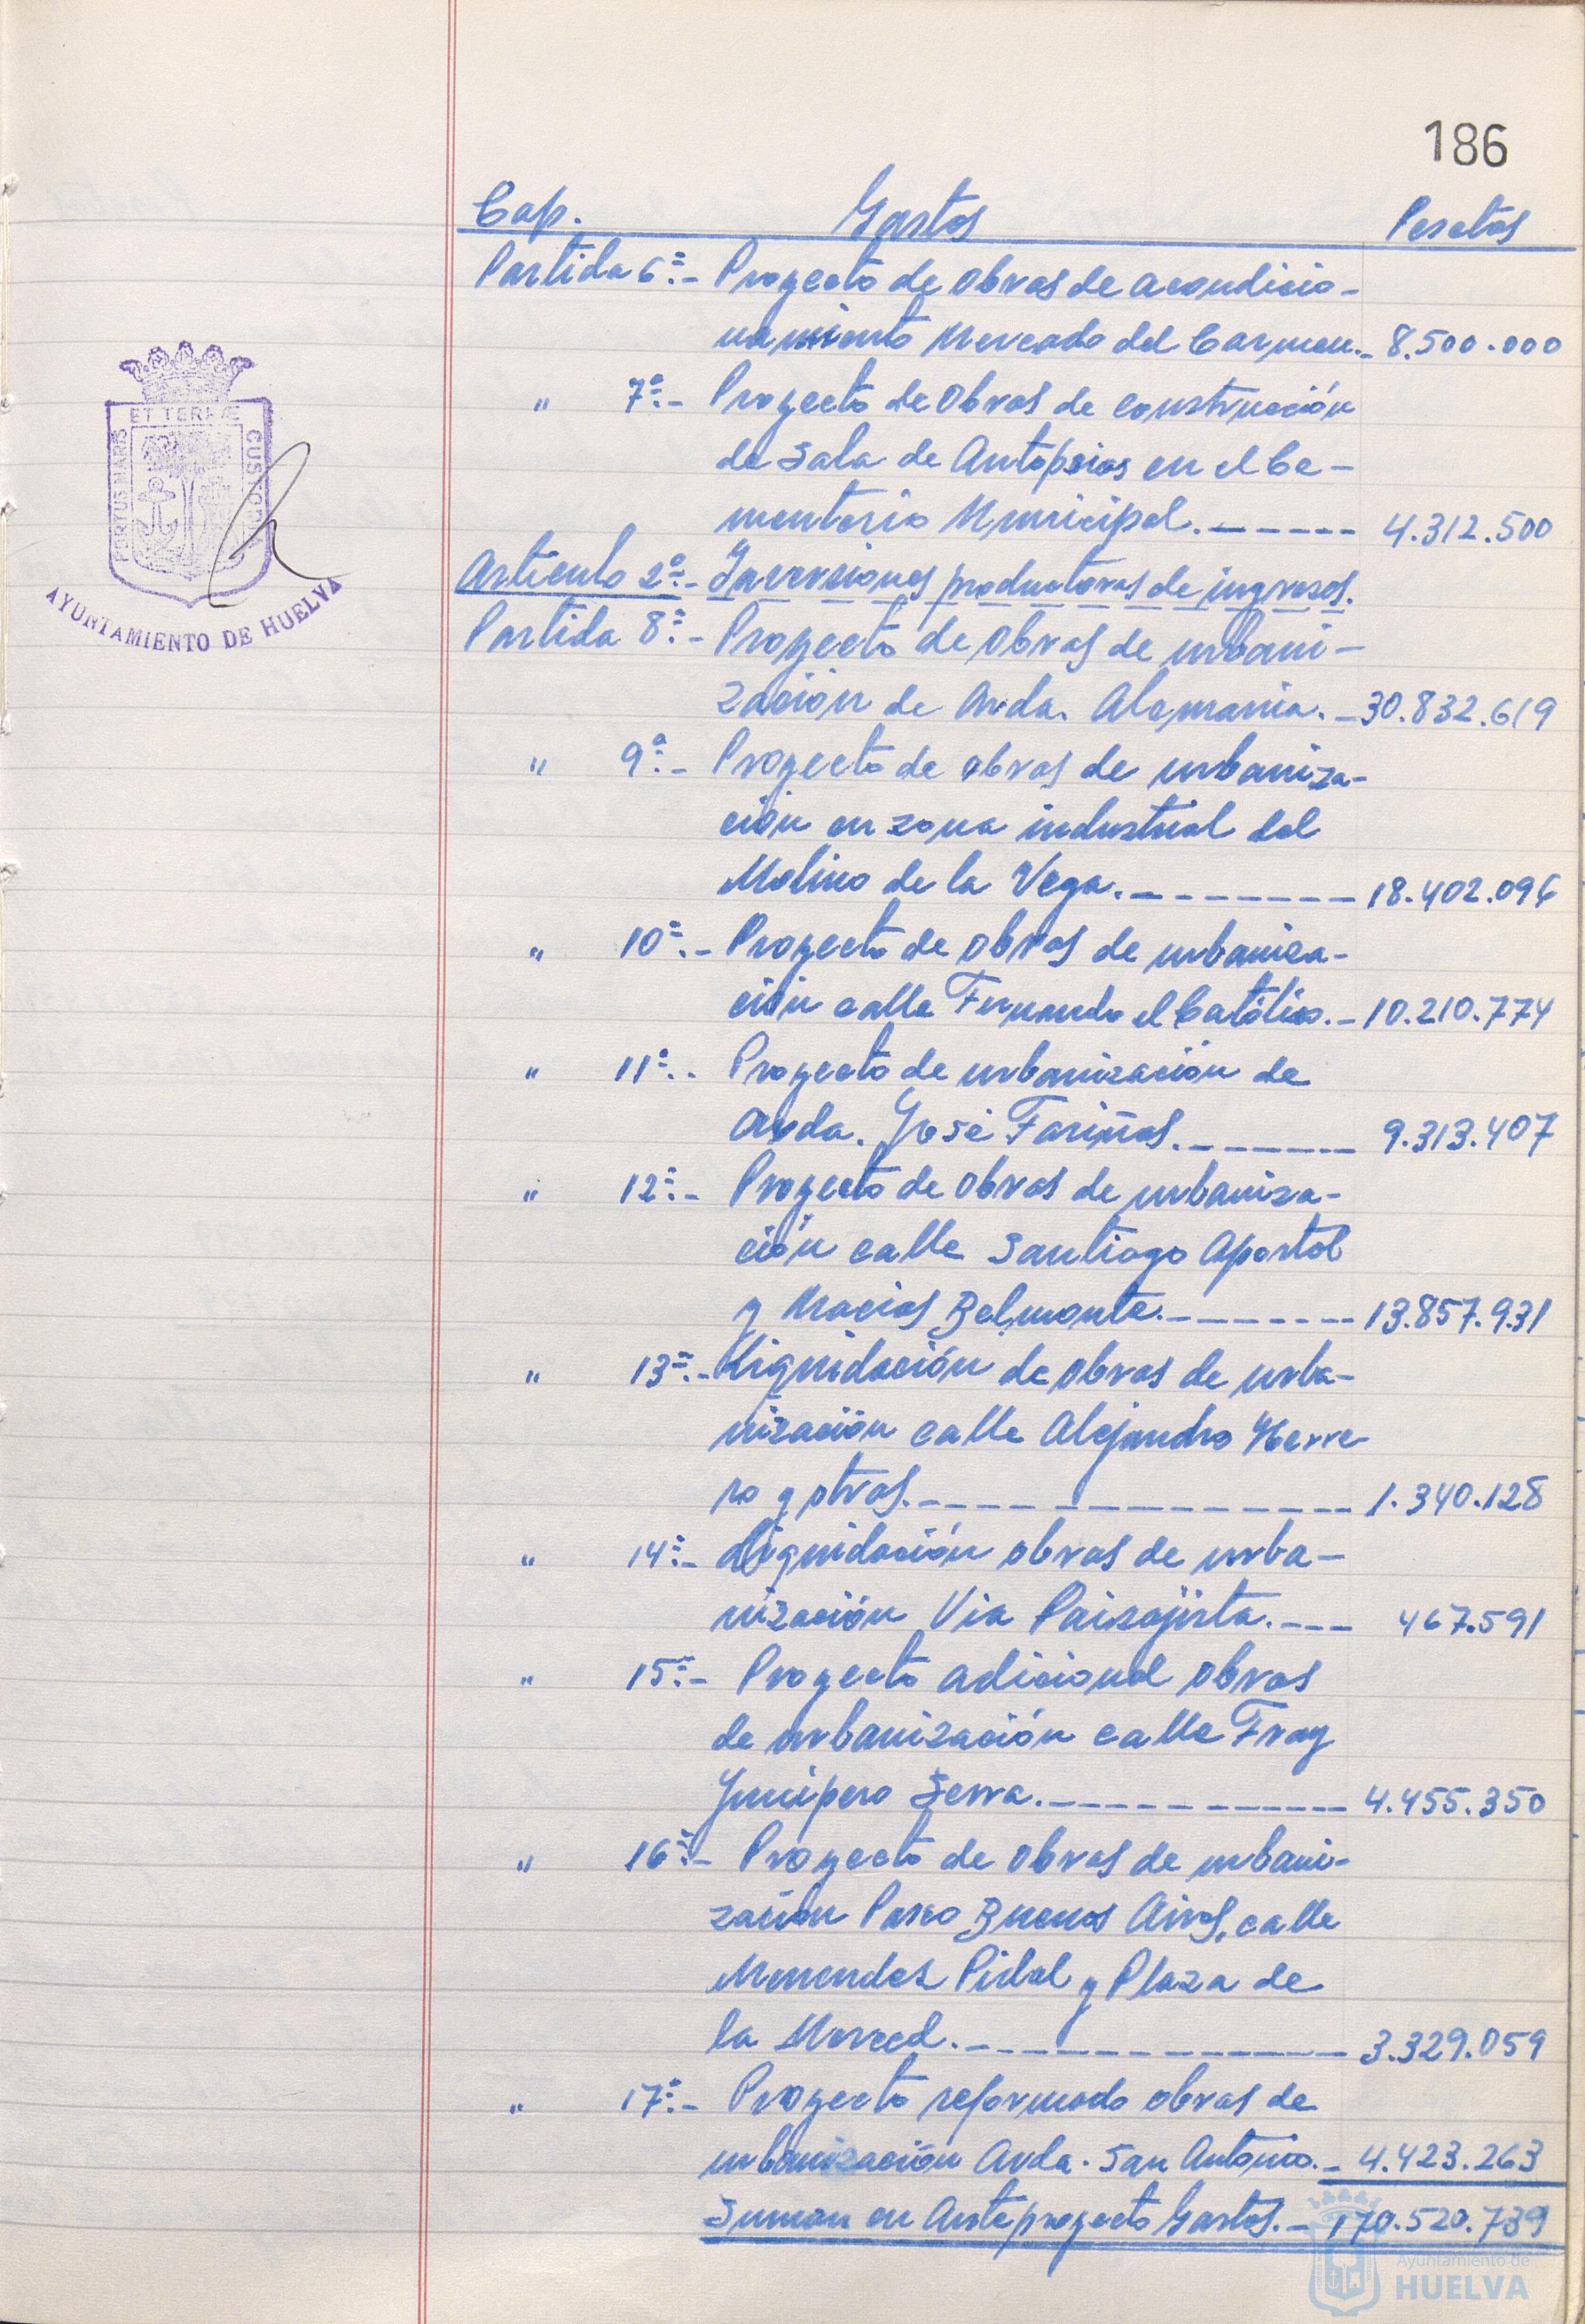 186
Cap. Gastos Pesetas
Partida 6ª.- Proyecto de Obras de acondicio-
namiento Mercado del Carmen.- 8.500.000
" 7ª.- Proyecto de Obras de construcción
de Sala de Autopsias en el Ce-
menterio Municipal.------ 4.312.500
Artículo 2º.- Inversiones productoras de ingresos.
Partida 8ª.- Proyecto de Obras de urbani-
zación de Avda. Alemania.- 30.832.619
" 9ª.- Proyecto de obras de urbaniza-
ción en zona industrial del
Molino de la Vega.-------- 18.402.096
" 10ª.- Proyecto de obras de urbaniza-
ción calle Fernando el Católico.- 10.210.774
" 11ª.. Proyecto de urbanización de
Avda. José Fariñas.------ 9.313.407
" 12ª.- Proyecto de Obras de urbaniza-
ción calle Santiago Apostol
y Macias Belmonte.------- 13.857.931
" 13ª.- Liquidación de obras de urba-
nización calle Alejandro Herre-
ro y otras.-------------- 1.340.128
" 14ª.- Liquidación obras de urba-
nización Via Paisajista.--- 467.591
" 15ª.- Proyecto adicional obras
de urbanización calle Fray
Junípero Serra.------------ 4.455.350
" 16ª.- Proyecto de Obras de urbani-
zación Paseo Buenos Aires, calle
Menendez Pidal y Plaza de
la Merced.-------------- 3.329.059
" 17ª.- Proyecto reformado obras de
urbanización Avda. San Antonio.- 4.423.263
Suman en Anteproyecto Gastos.- 170.520.739
PORTUS MARIS
ET TERRÆ
CUSTODIA
AYUNTAMIENTO DE HUELVA
Ayuntamiento de
HUELVA